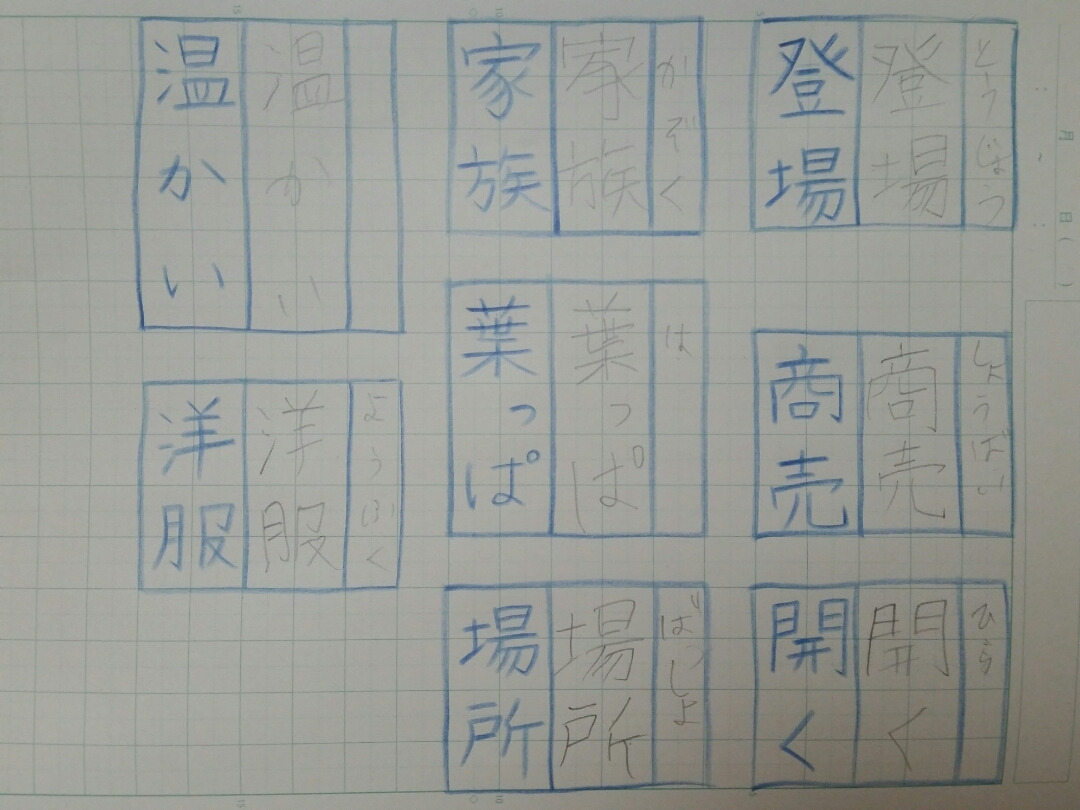 月 日( )
とうじょう
登場
登場
しょうばい
商売
商売
ひら
開く
開く
かぞく
家族
家族
は
葉っぱ
葉っぱ
ばっしょ
場所
場所
温かい
温かい
ようふく
洋服
洋服